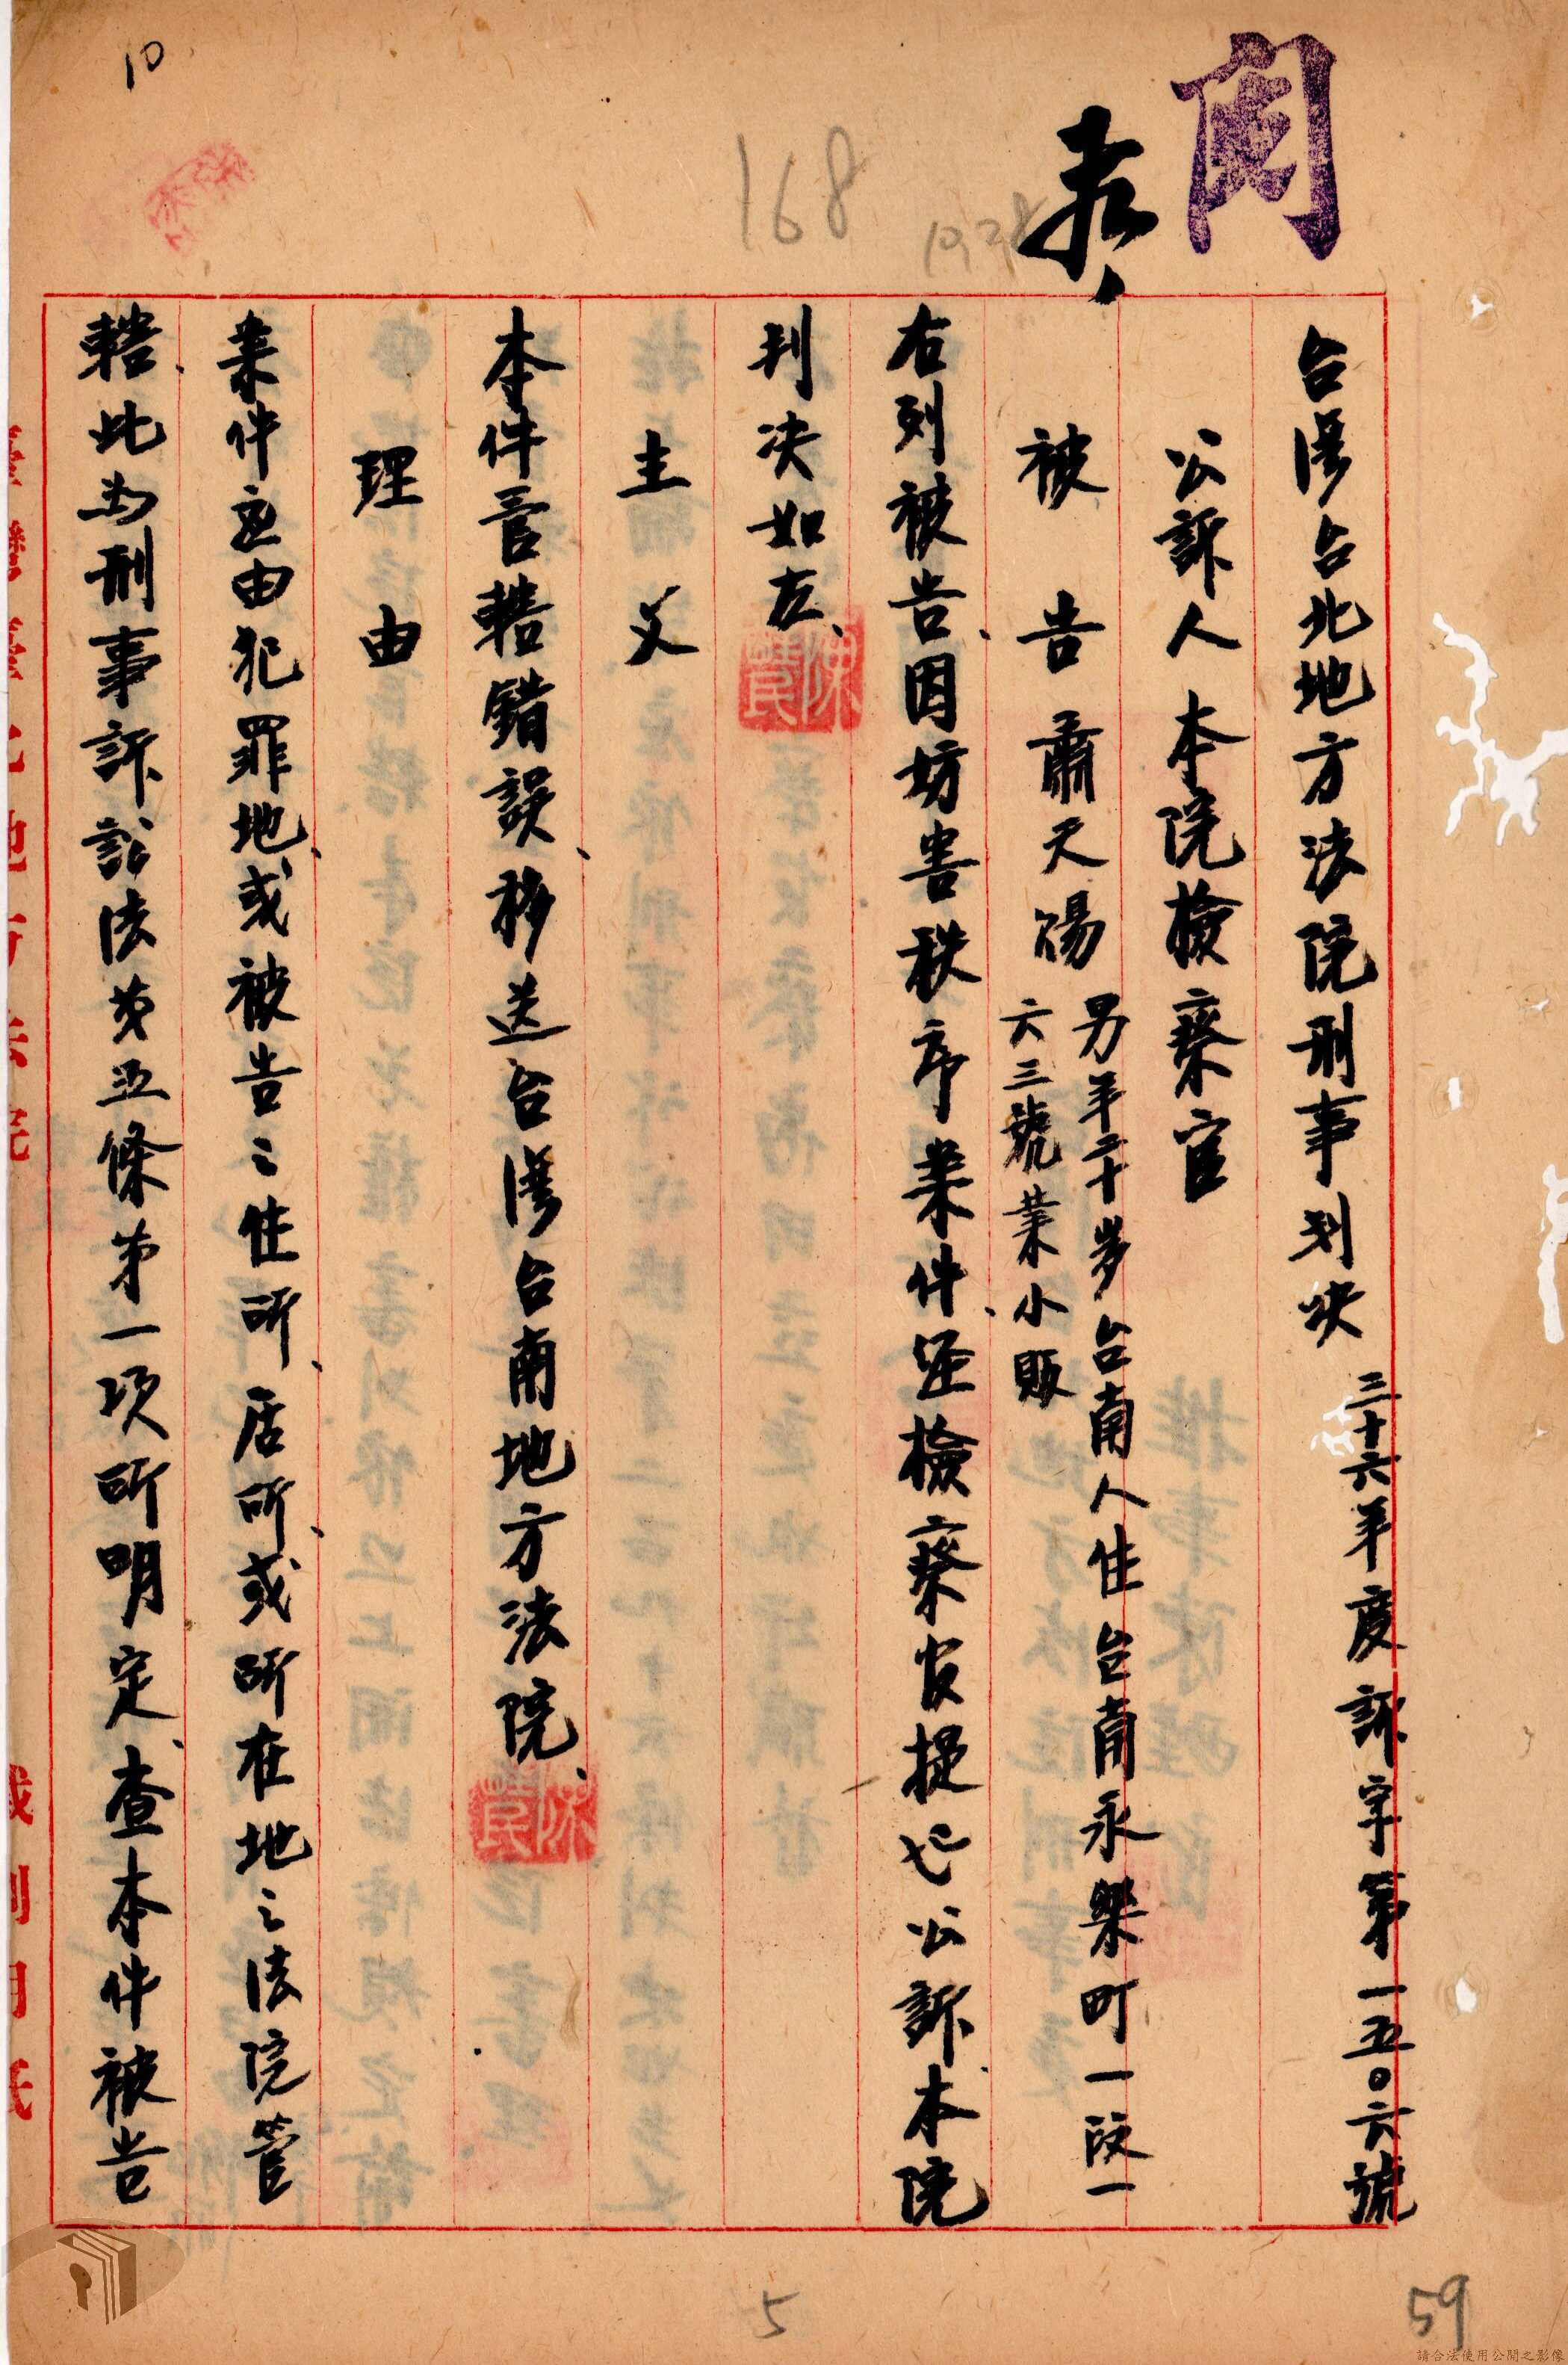 10
168
10.28
台灣台北地方法院刑事判決 三十六年度訴字第一五〇六號
公訴人 本院檢察官
被告 蕭天賜 男年二十岁台南人住台南永樂町一段一
六三號業小販
右列被告因妨害秩序案件経檢察官提起公訴本院
判決如左、
主文
本件管轄錯誤、移送台灣台南地方法院、
理由
案件应由犯罪地、或被告之住所、居所、或所在地之法院管
轄、此为刑事訴訟法第五條第一項所明定、查本件被告
5
59
請合法使用公開之影像